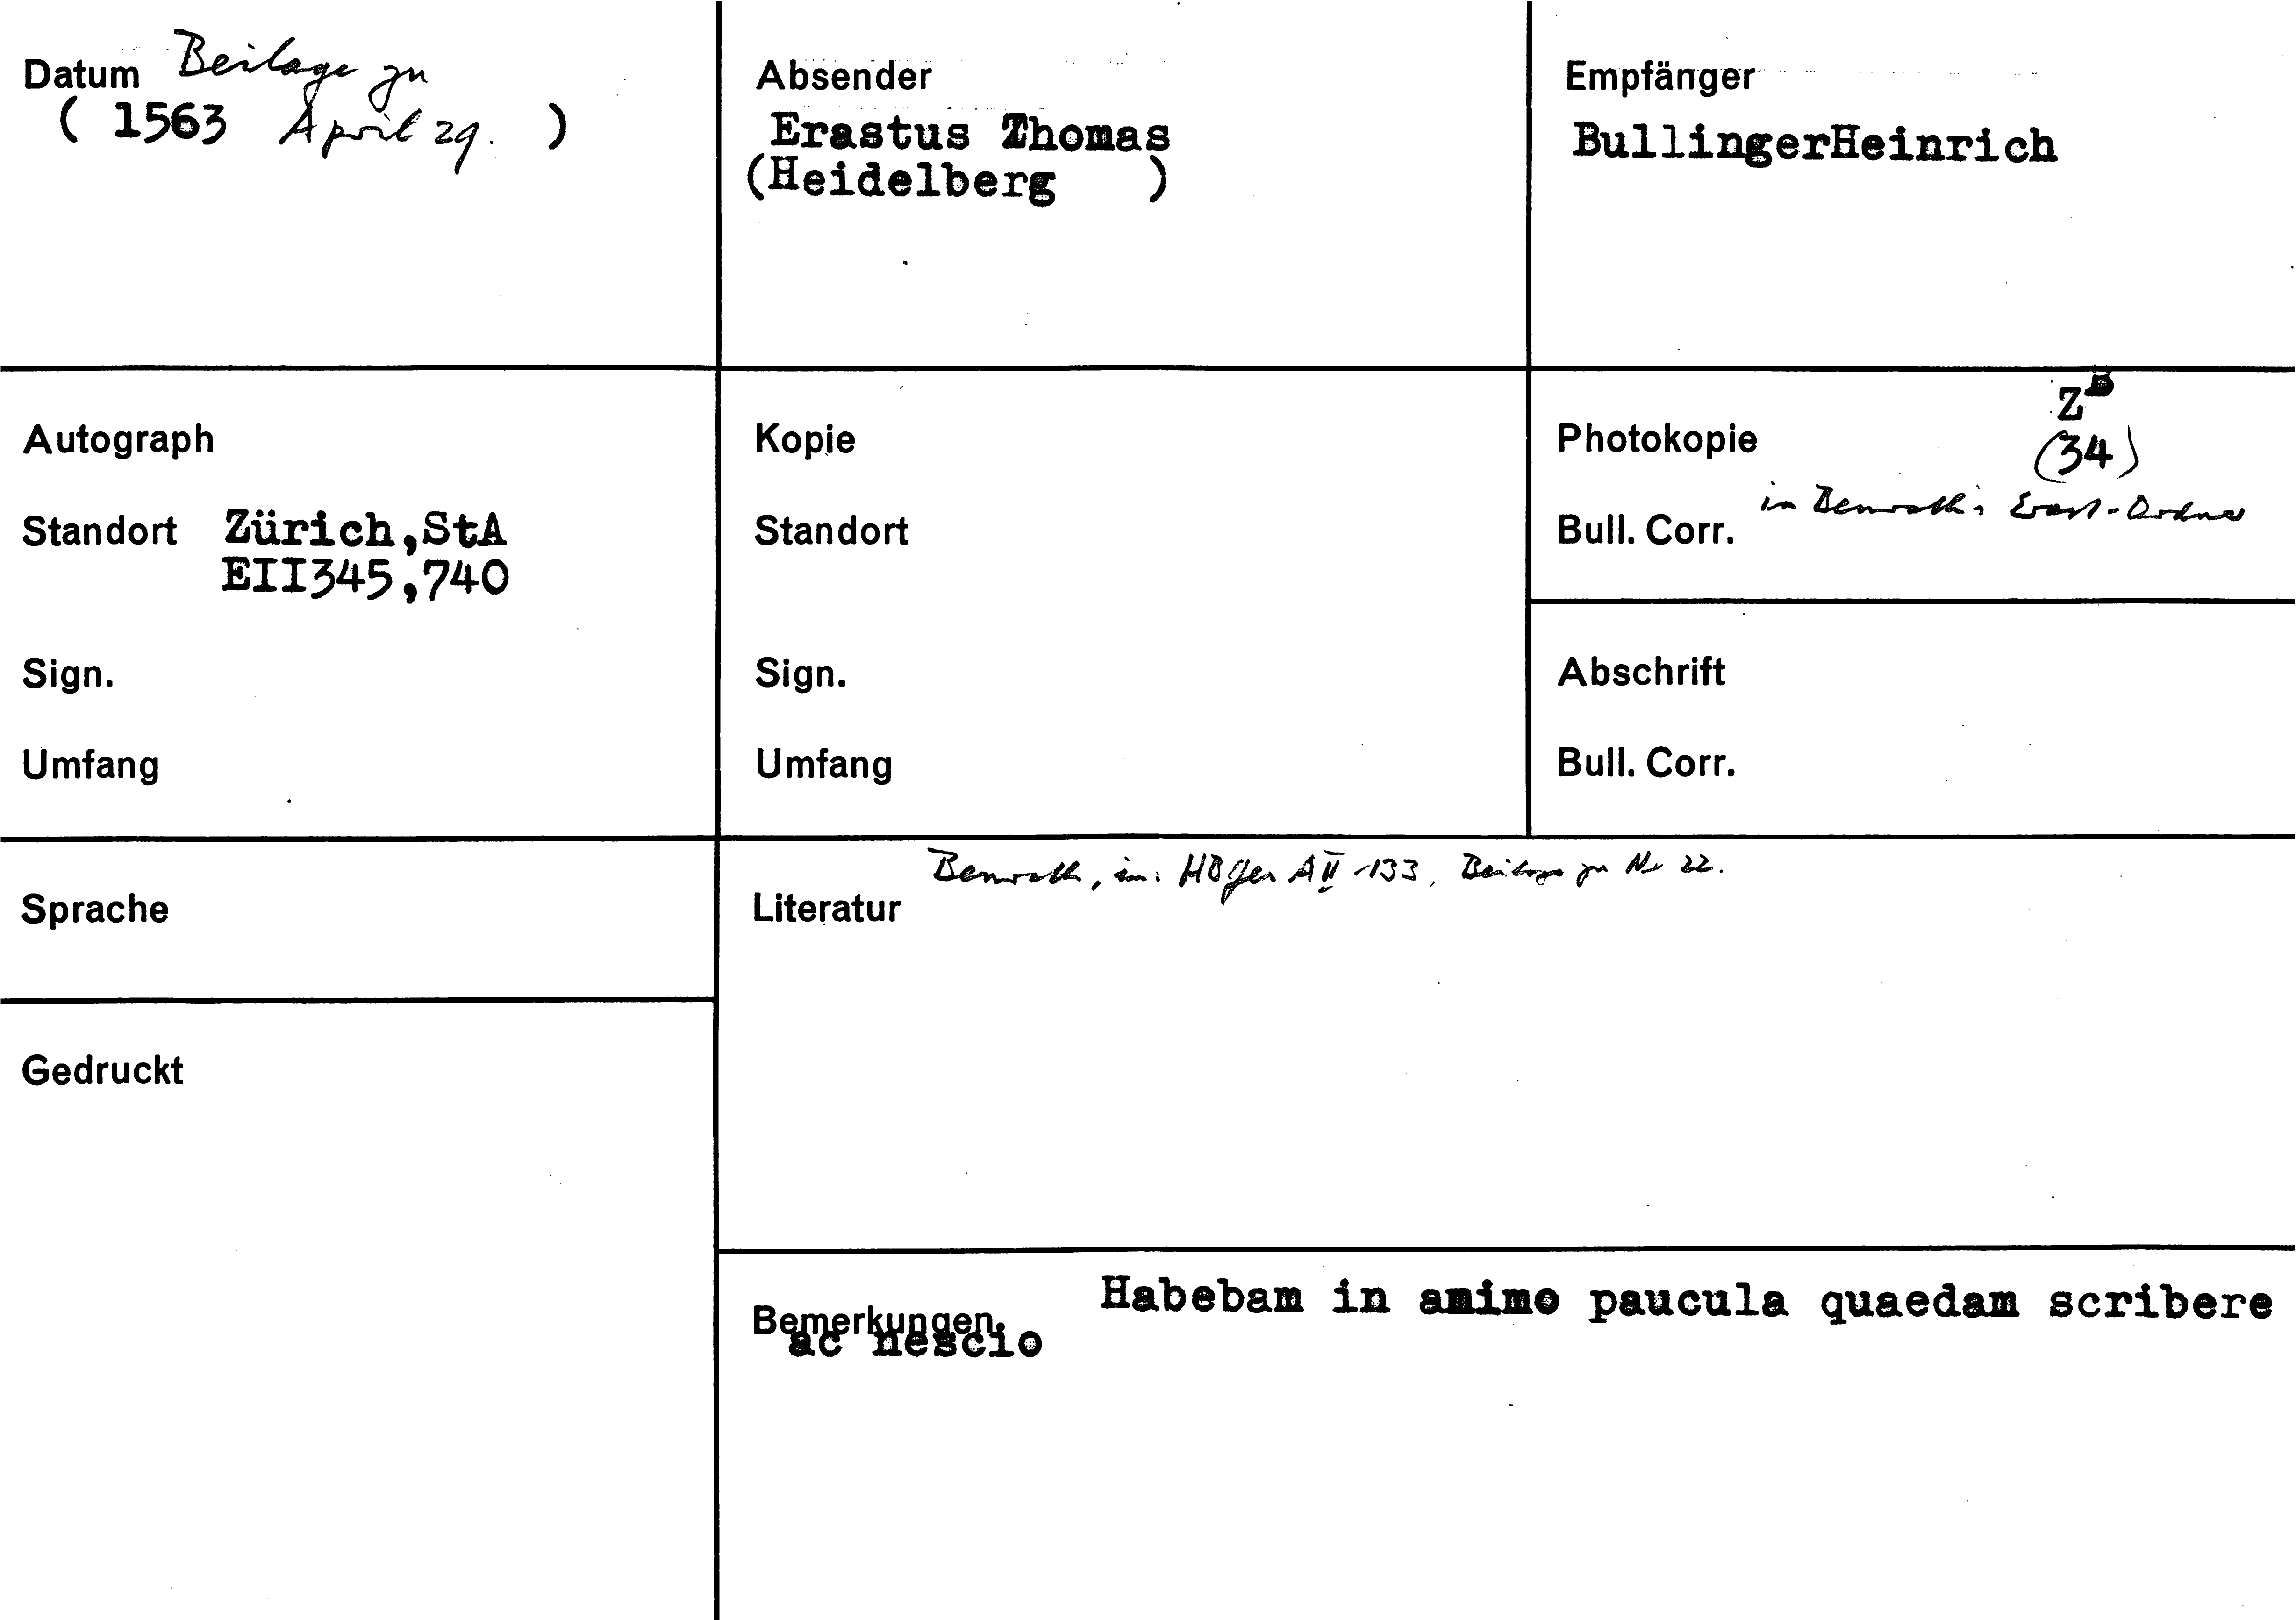 Datum Beilage zu
( 1563 April 29. )
Absender
Erastus Thomas
(Heidelberg )
Empfänger
BullingerHeinrich
Autograph
Standort Zürich,StA
EII345,740
Sign.
Umfang
Kopie
Standort
Sign.
Umfang
Photokopie ZB
(34)
Bull. Corr. in Benrath's Erast-Ordner
Abschrift
Bull. Corr.
Sprache
Gedruckt
Benrath, in: HBGesA II 133, Beilage zu Nr 22.
Literatur
Bemerkungen Habebam in animo paucula quaedam scribere
ac nescio